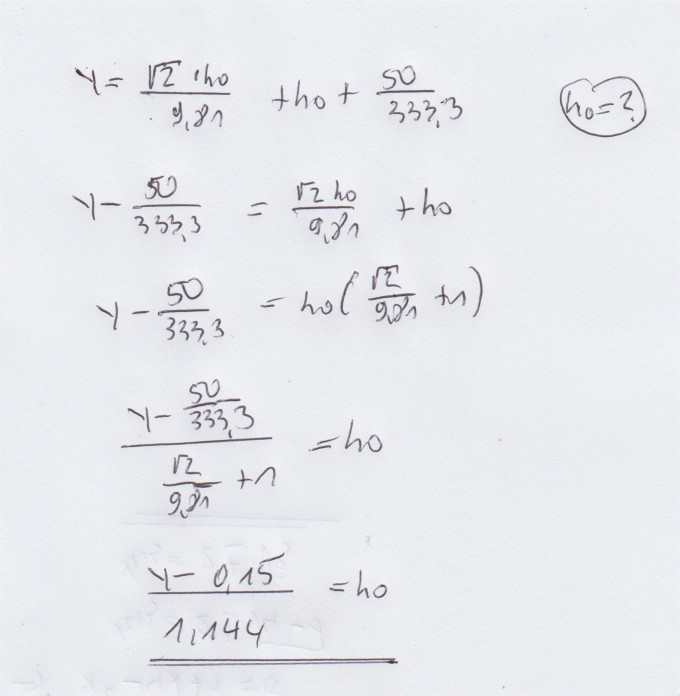 y = √2 · h₀ / 9,81 + h₀ + 50 / 333,3
h₀ = ?
y − 50 / 333,3 = √2 h₀ / 9,81 + h₀
y − 50 / 333,3 = h₀ ( √2 / 9,81 + 1 )
(y − 50 / 333,3) / (√2 / 9,81 + 1) = h₀
(y − 0,15) / 1,144 = h₀